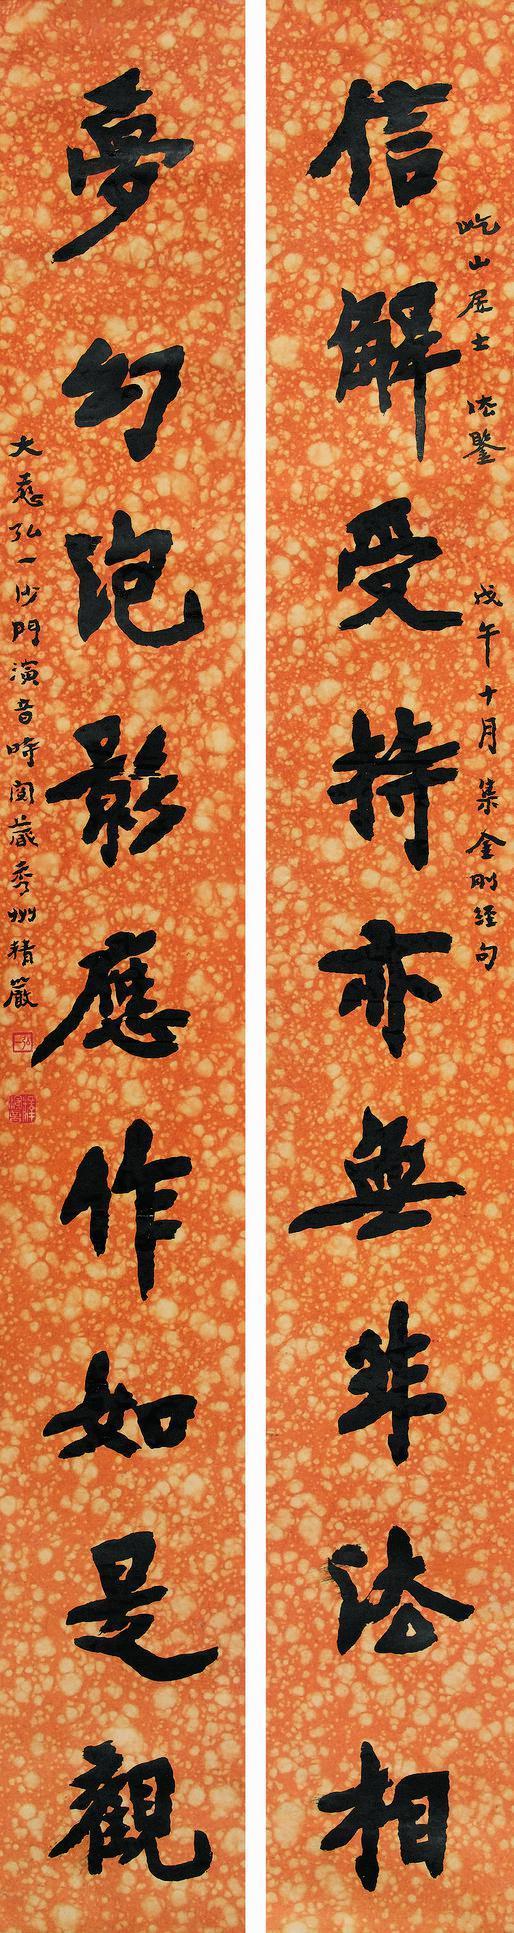 屹山居士 法鑒 戊午十月 集金剛經句
信解受持亦無非法相
夢幻泡影應作如是觀
大慈弘一沙門演音時閱藏秀州精嚴
弘一